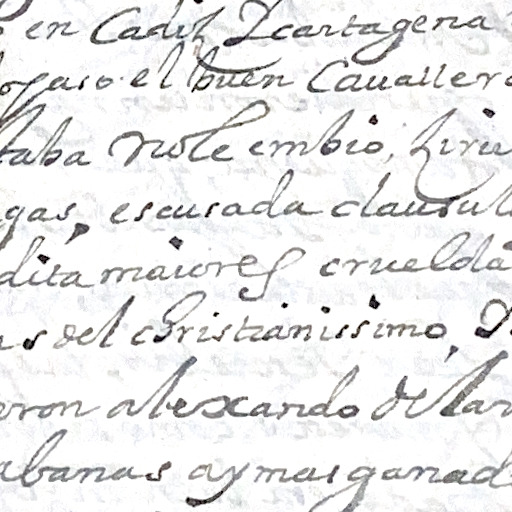 en Cadiz Y cartagena
el buen Cauallero
taba no le embio,
gas, escusada clausul
dita maiores crueldá
as del christianissimo,
eron alexando de lar
abanas ay mas ganad